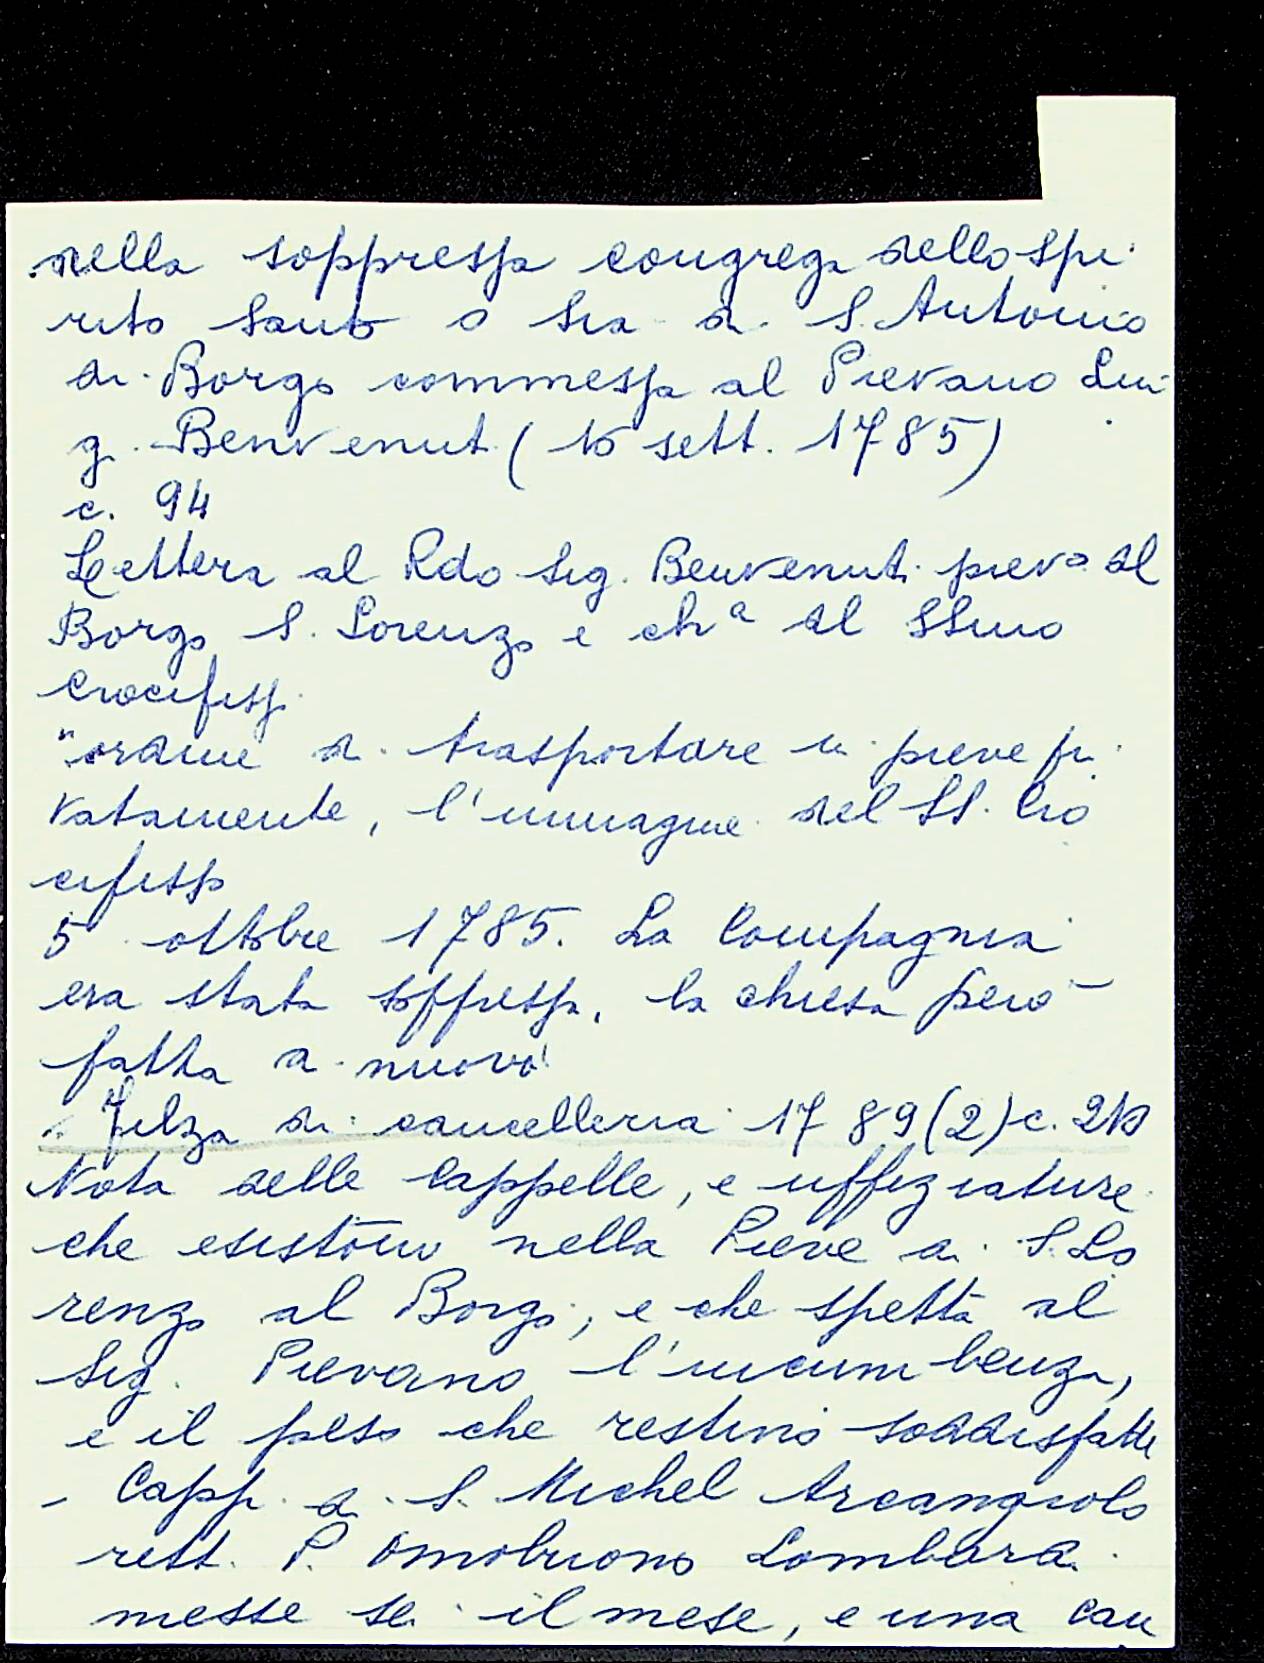 della soppressa congrega dello Spi
rito Santo o sia di S. Antonio
di Borgo commessa al Pievano Lui
gi Benvenuti (10 sett. 1785)
c. 94
Lettera al Rdo Sig. Benvenuti pievo al
Borgo S. Lorenzo e cha al SSmo
Crocifisso
"ordine di trasportare in pieve pri
vatamente, l'immagine del SS. Cro
cifisso
5 ottobre 1785. La Compagnia
era stata soppressa, la chiesa però
fatta di nuovo
Filza di cancelleria 1789 (2) c.
Nota delle Cappelle, e uffiziature
che esistono nella Pieve di S. Lo
renzo al Borgo, e che spetta al
Sig. Pievano l'incumbenza,
e il peso che restino soddisfatte
- Capp. di S. Michel Arcangiolo
rett. P. Omobuono Lombardi
messe sei il mese, e una can